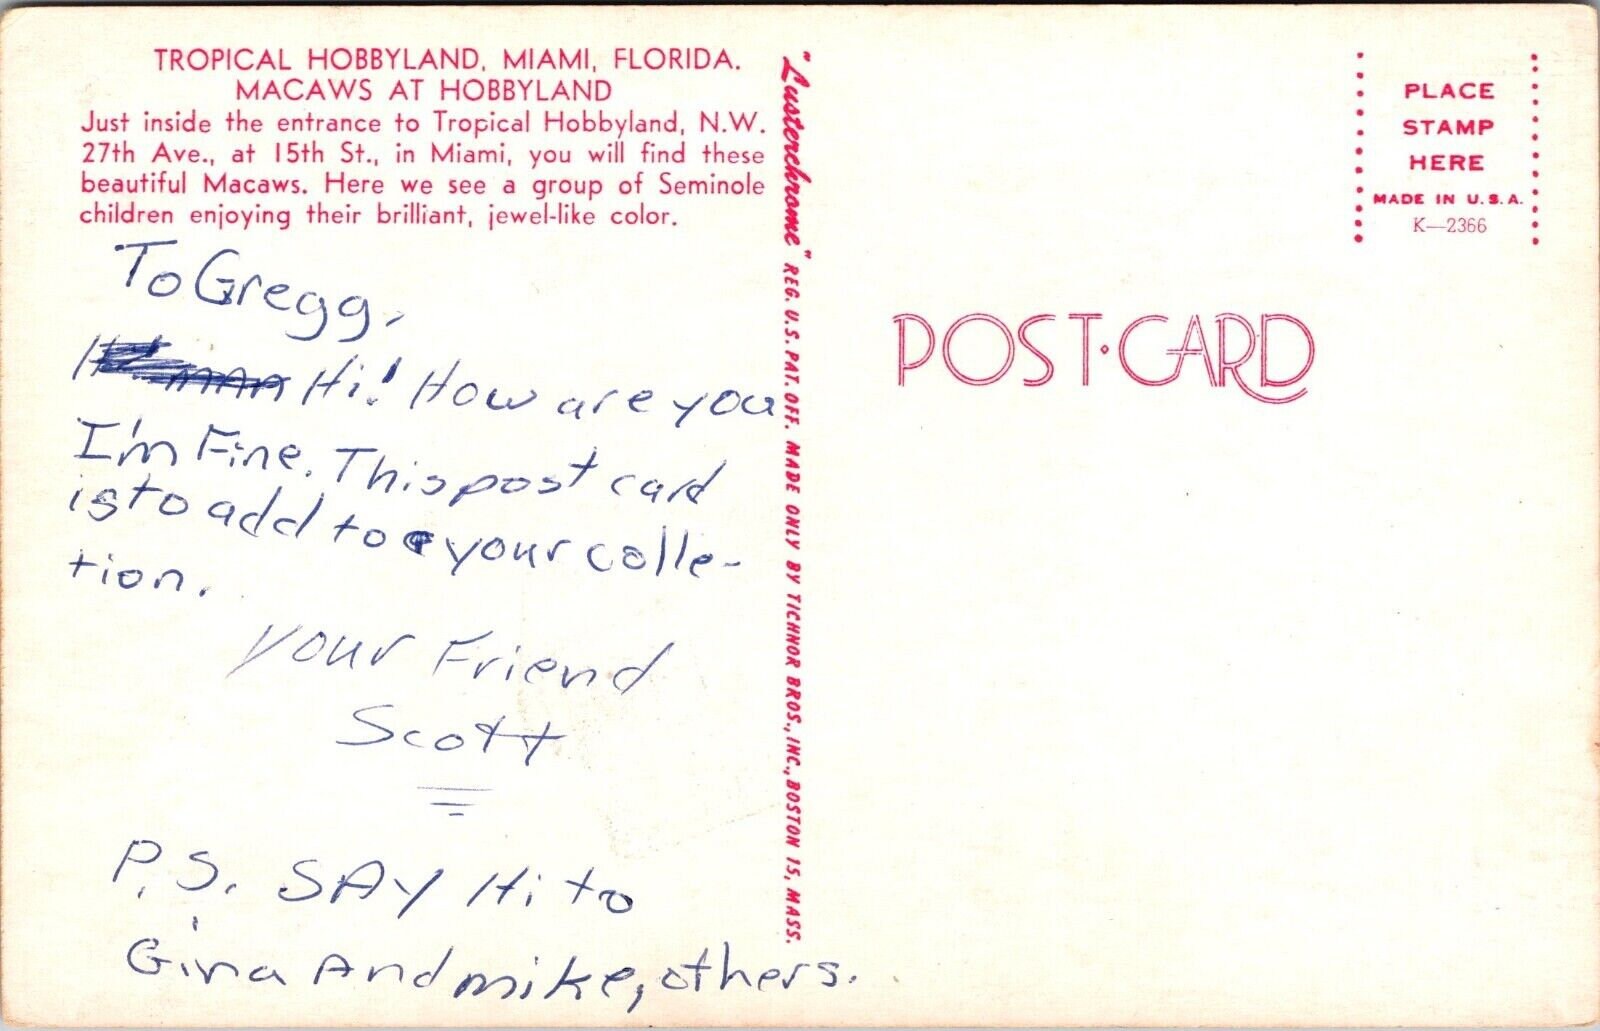 TROPICAL HOBBYLAND, MIAMI, FLORIDA.
MACAWS AT HOBBYLAND
Just inside the entrance to Tropical Hobbyland, N.W.
27th Ave., at 15th St., in Miami, you will find these
beautiful Macaws. Here we see a group of Seminole
children enjoying their brilliant, jewel-like color.
To Gregg,
Hi! How are you
I'm Fine. This post card
is to add to your colle-
tion.
Your Friend
Scott
P.S. SAY Hi to
Gina And mike, others.
"Lusterchrome" REG. U.S. PAT. OFF. MADE ONLY BY TICHNOR BROS., INC., BOSTON 15, MASS.
POST·CARD
PLACE
STAMP
HERE
MADE IN U.S.A.
K—2366